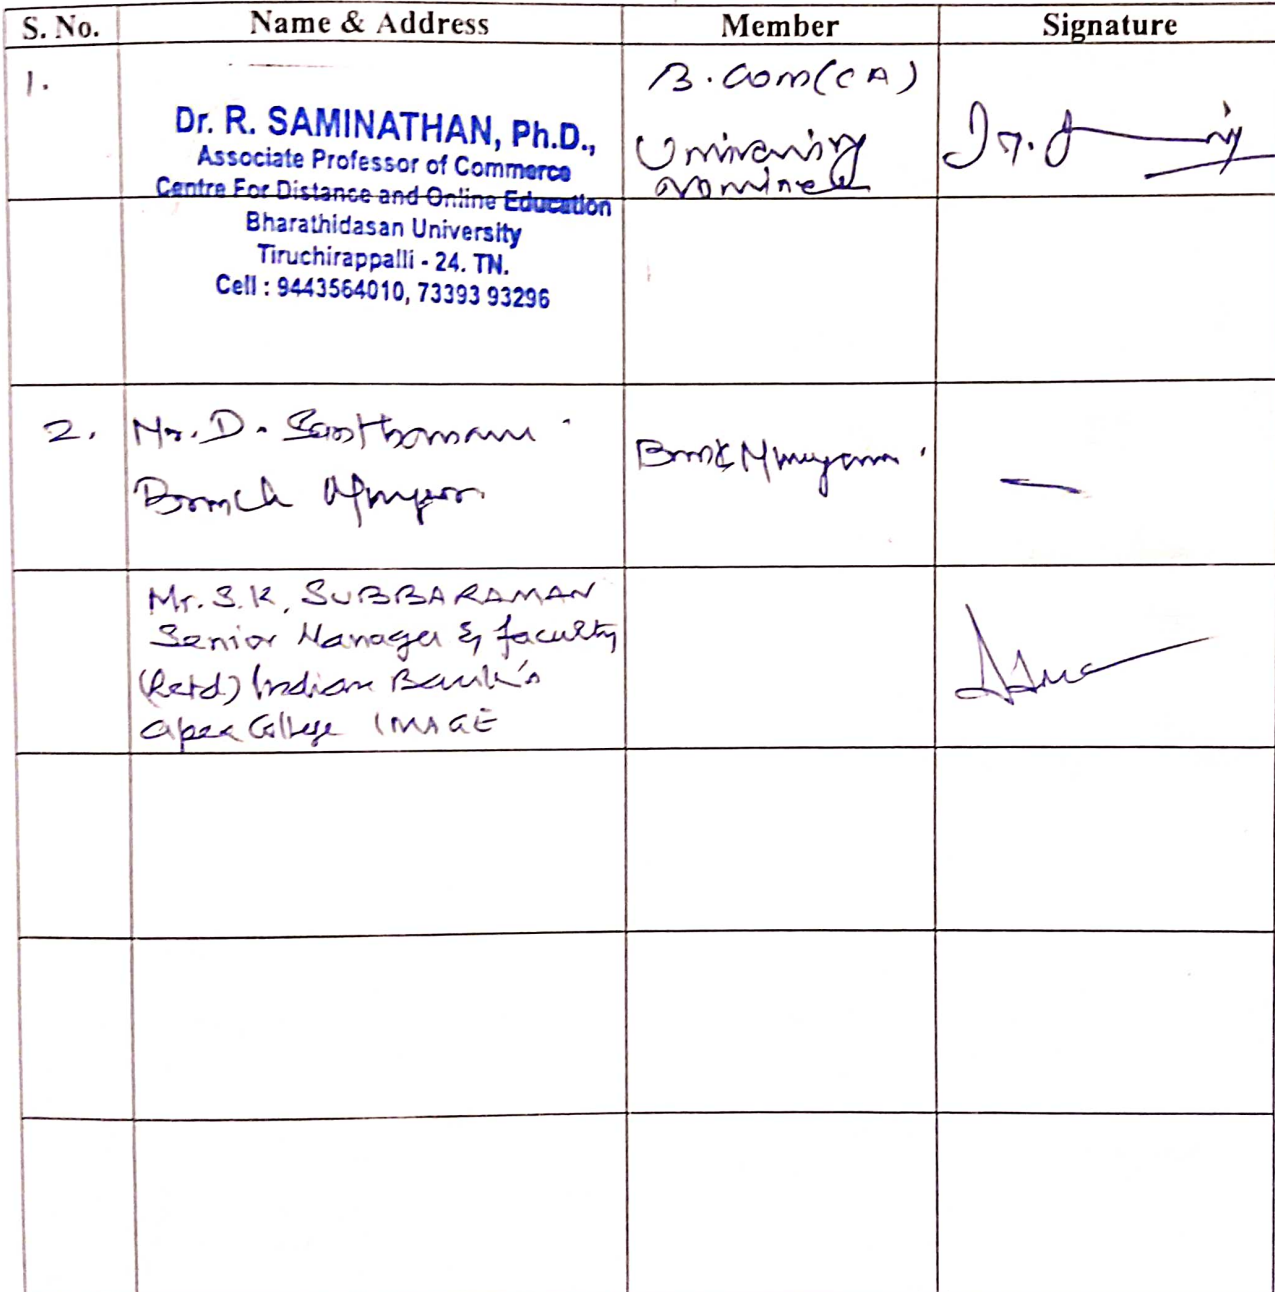 S. No. Name & Address Member Signature
1.
Dr. R. SAMINATHAN, Ph.D.,
Associate Professor of Commerce
Centre For Distance and Online Education
Bharathidasan University
Tiruchirappalli - 24. TN.
Cell : 9443564010, 73393 93296
B.Com(CA)
University
nominee
2. Mr. D. Santhanam
Branch
Mr. S.K, SUBBARAMAN
Senior Manager & faculty
(Retd) Indian Bank's
apex College IMAGE